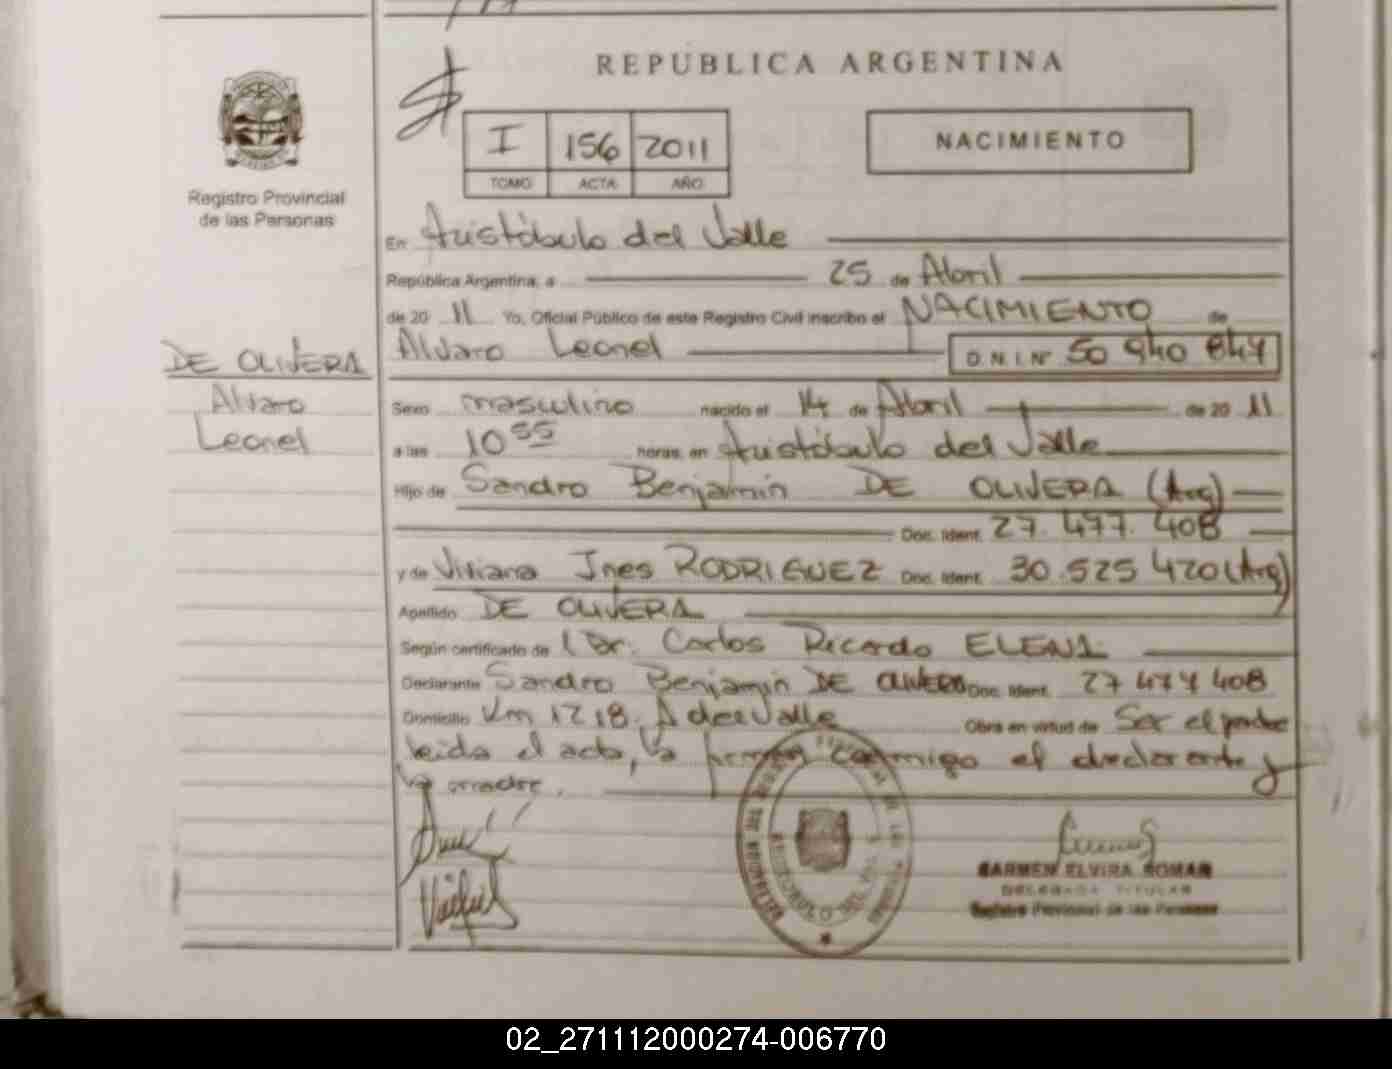 REPÚBLICA ARGENTINA
I 156 2011
TOMO ACTA AÑO
NACIMIENTO
Registro Provincial
de las Personas
En Aristóbulo del Valle
República Argentina, a 25 de Abril
de 20 11 Yo, Oficial Público de este Registro Civil inscribo el NACIMIENTO de
Alvaro Leonel D.N.I. Nº 50 940 847
DE OLIVERA
Alvaro
Leonel
Sexo masculino nacido el 14 de Abril de 20 11
a las 10 55 horas, en Aristóbulo del Valle
Hijo de Sandro Benjamin DE OLIVERA (Arg)
Doc. Ident. 27.477.408
y de Viviana Ines RODRIGUEZ Doc. Ident. 30.525 420 (Arg)
Apellido DE OLIVERA
Según certificado de Dr. Carlos Ricardo ELENA
Declarante Sandro Benjamin DE OLIVERA Doc. Ident. 27 477 408
Domicilio Km 1218. A del Valle Obra en virtud de Ser el padre
leida el acta, la firman conmigo el declarante y
la madre.
CARMEN ELVIRA ROMAN
DELEGADA TITULAR
Registro Provincial de las Personas
02_271112000274-006770